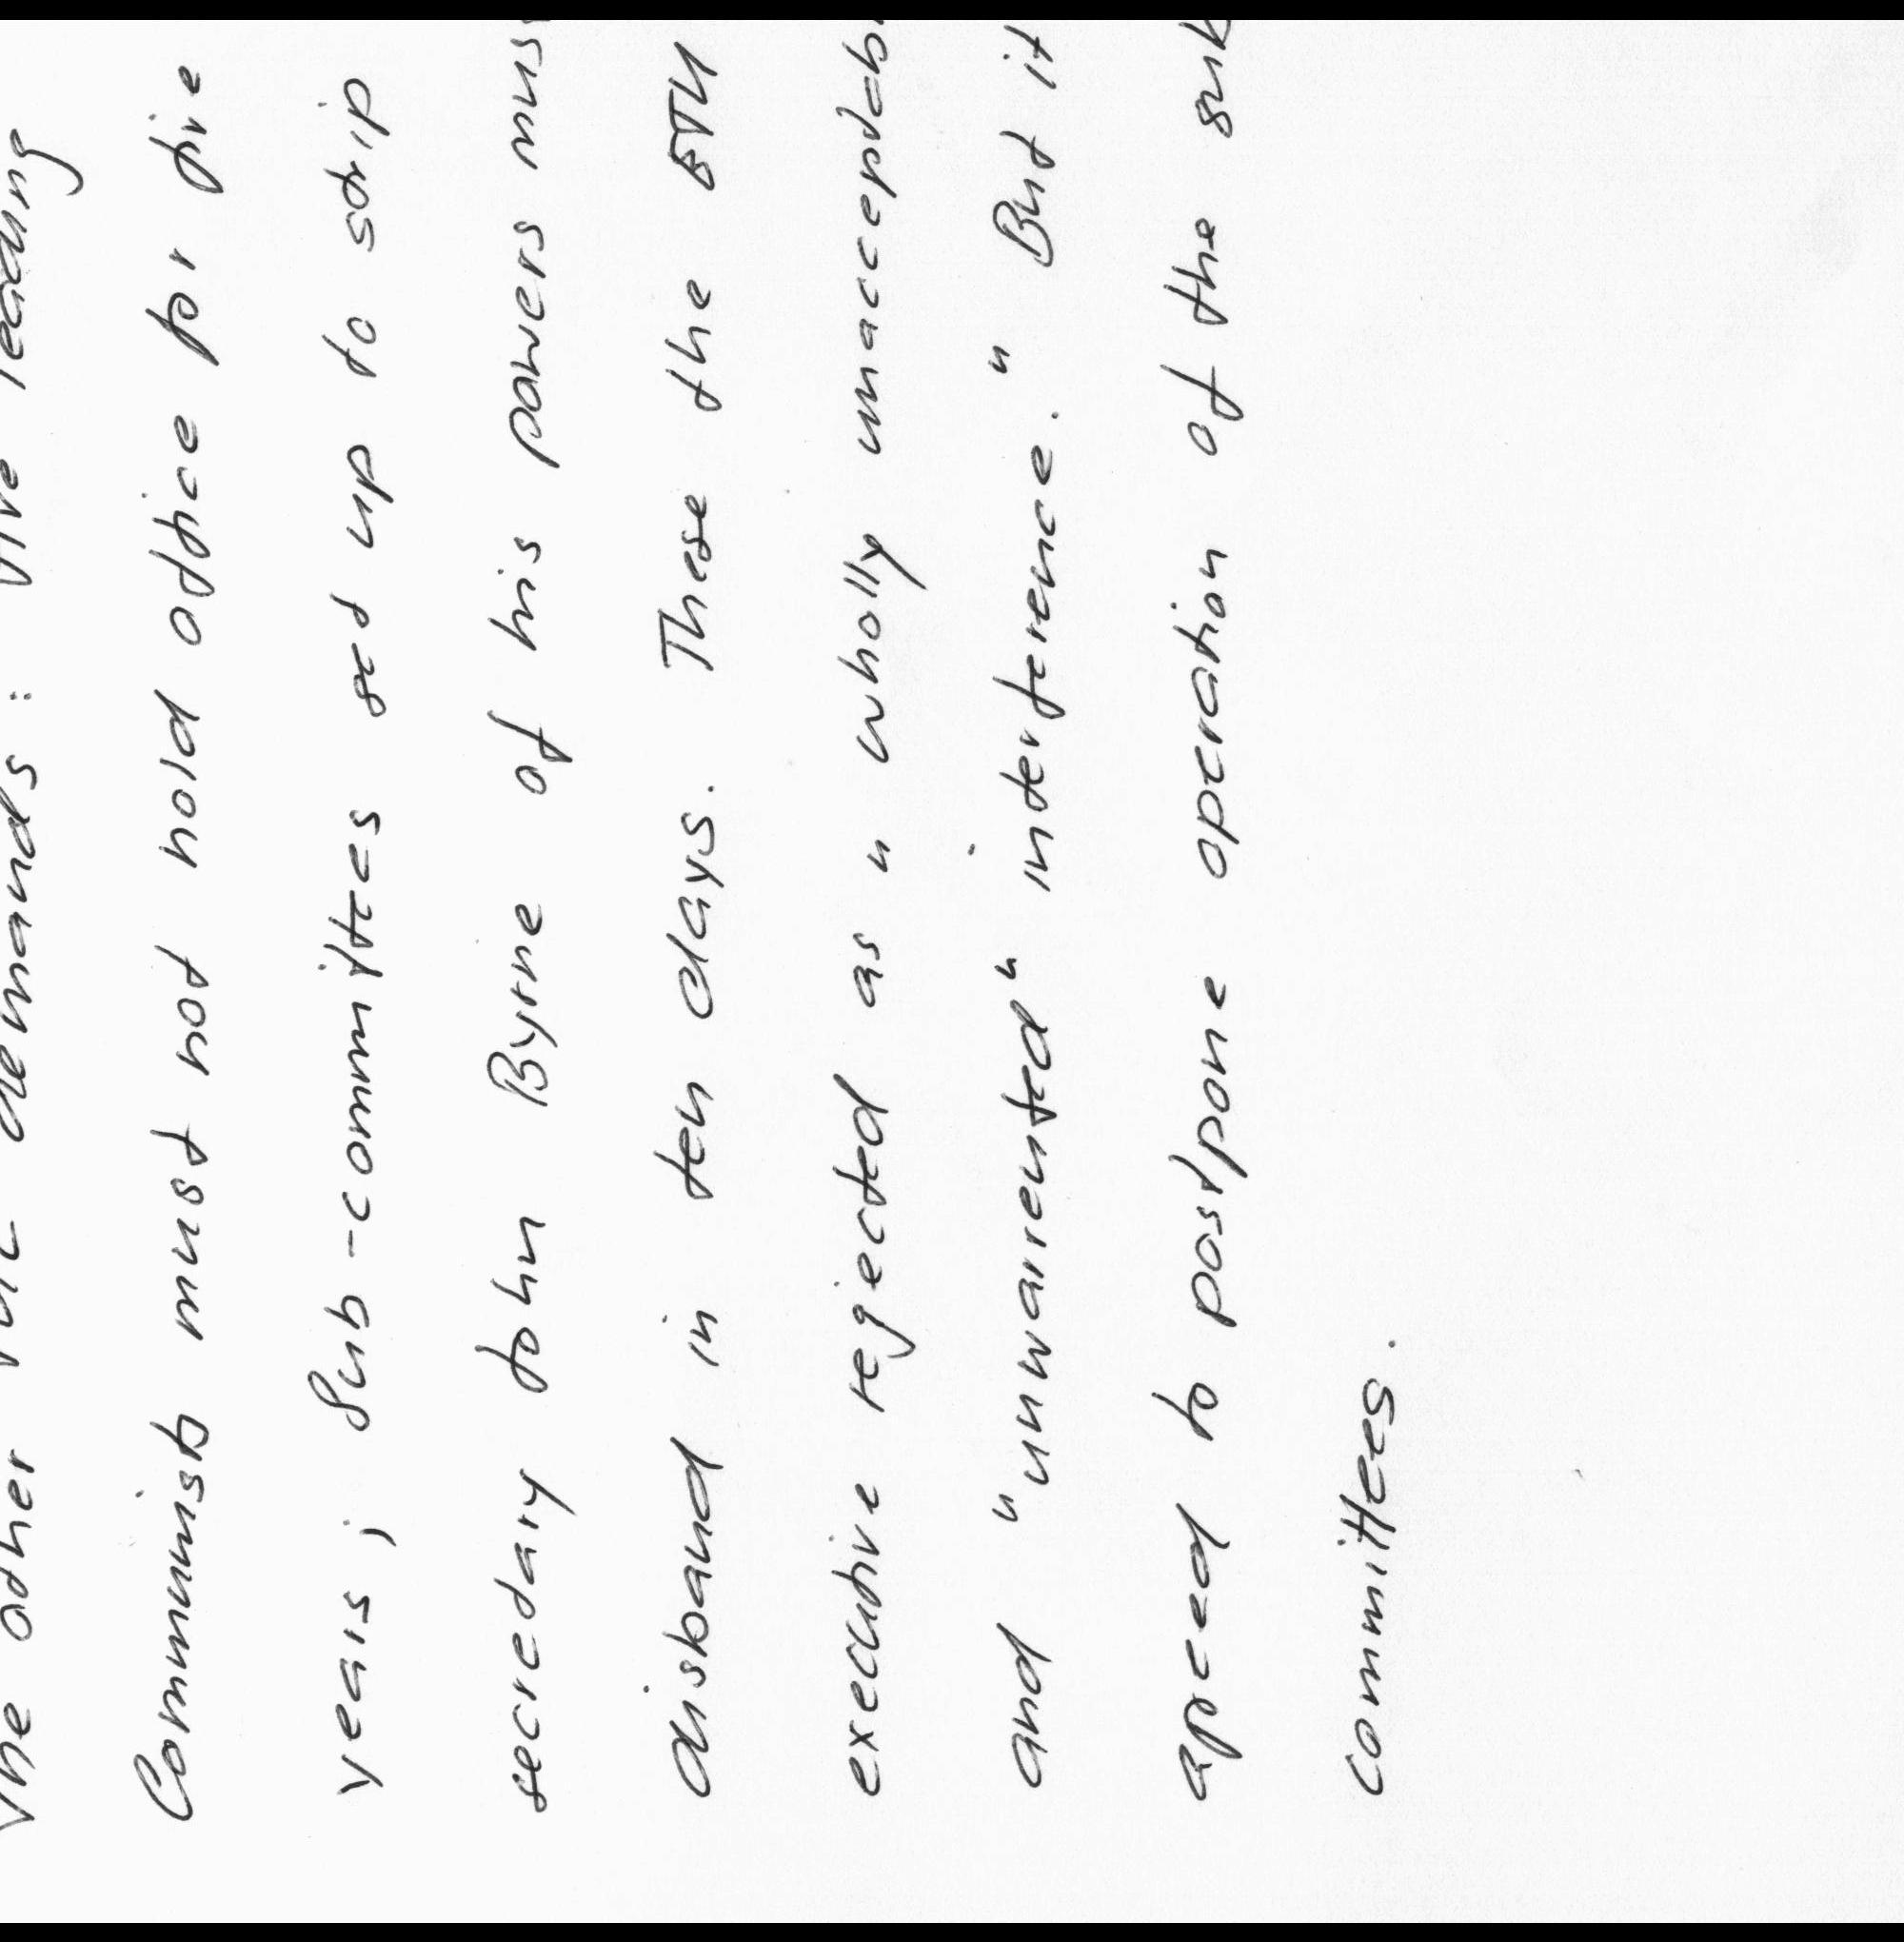 The other TUC demands: Five leading
Communists must not hold office for five
years; Sub-commitees set up to strip
secretary John Byrne of his powers mus
disband in ten days. These the ETU
executive rejected as "wholly unacceptab
and "unwarrented" interference." But it
agreed to postpone operation of the sub
committees.